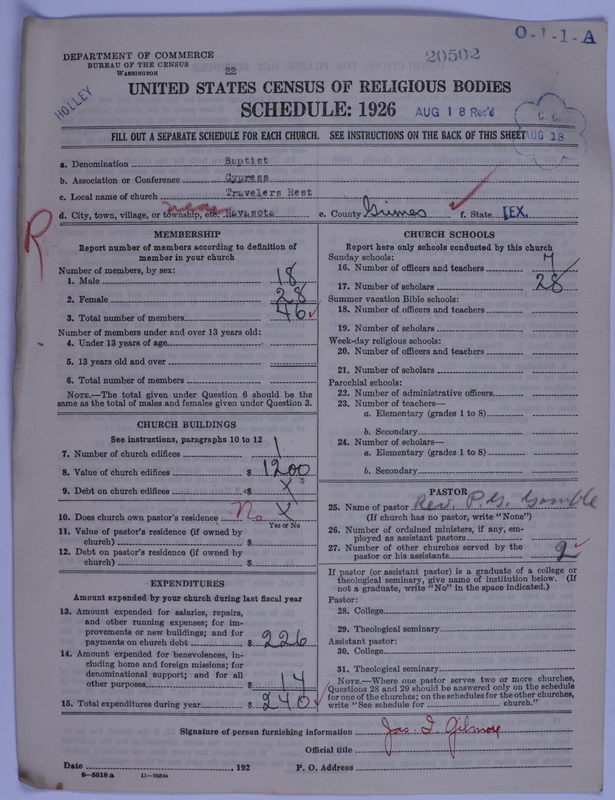 O-1-1-A
DEPARTMENT OF COMMERCE
BUREAU OF THE CENSUS
WASHINGTON
22
20502
HOLLEY
UNITED STATES CENSUS OF RELIGIOUS BODIES
SCHEDULE: 1926
AUG 18 Rec'd
C. C.
AUG 18
FILL OUT A SEPARATE SCHEDULE FOR EACH CHURCH. SEE INSTRUCTIONS ON THE BACK OF THIS SHEET
a. Denomination Baptist
b. Association or Conference Cypress
c. Local name of church Travelers Rest
d. City, town, village, or township, etc. near Navasota e. County Grimes f. State TEX.
R
MEMBERSHIP
Report number of members according to definition of
member in your church
Number of members, by sex:
1. Male 18
2. Female 28
3. Total number of members 46
Number of members under and over 13 years old:
4. Under 13 years of age
5. 13 years old and over
6. Total number of members
NOTE.—The total given under Question 6 should be the
same as the total of males and females given under Question 3.
CHURCH BUILDINGS
See instructions, paragraphs 10 to 12
7. Number of church edifices 1
8. Value of church edifices $ 1200
9. Debt on church edifices $ X
10. Does church own pastor's residence No X
Yes or No
11. Value of pastor's residence (if owned by
church) $
12. Debt on pastor's residence (if owned by
church) $
EXPENDITURES
Amount expended by your church during last fiscal year
13. Amount expended for salaries, repairs,
and other running expenses; for im-
provements or new buildings; and for
payments on church debt $ 226
14. Amount expended for benevolences, in-
cluding home and foreign missions; for
denominational support; and for all
other purposes $ 14
15. Total expenditures during year $ 240
CHURCH SCHOOLS
Report here only schools conducted by this church
Sunday schools:
16. Number of officers and teachers 7
17. Number of scholars 28
Summer vacation Bible schools:
18. Number of officers and teachers
19. Number of scholars
Week-day religious schools:
20. Number of officers and teachers
21. Number of scholars
Parochial schools:
22. Number of administrative officers
23. Number of teachers—
a. Elementary (grades 1 to 8)
b. Secondary
24. Number of scholars—
a. Elementary (grades 1 to 8)
b. Secondary
PASTOR
25. Name of pastor Rev. P.G. Gamble
(If church has no pastor, write "None")
26. Number of ordained ministers, if any, em-
ployed as assistant pastors
27. Number of other churches served by the
pastor or his assistants 2
If pastor (or assistant pastor) is a graduate of a college or
theological seminary, give name of institution below. (If
not a graduate, write "No" in the space indicated.)
Pastor:
28. College
29. Theological seminary
Assistant pastor:
30. College
31. Theological seminary
NOTE.—Where one pastor serves two or more churches,
Questions 28 and 29 should be answered only on the schedule
for one of the churches; on the schedules for the other churches,
write "See schedule for church."
Signature of person furnishing information Jas. I. Gilmore
Official title
Date , 192 P. O. Address
8—5518 a 11—9054a